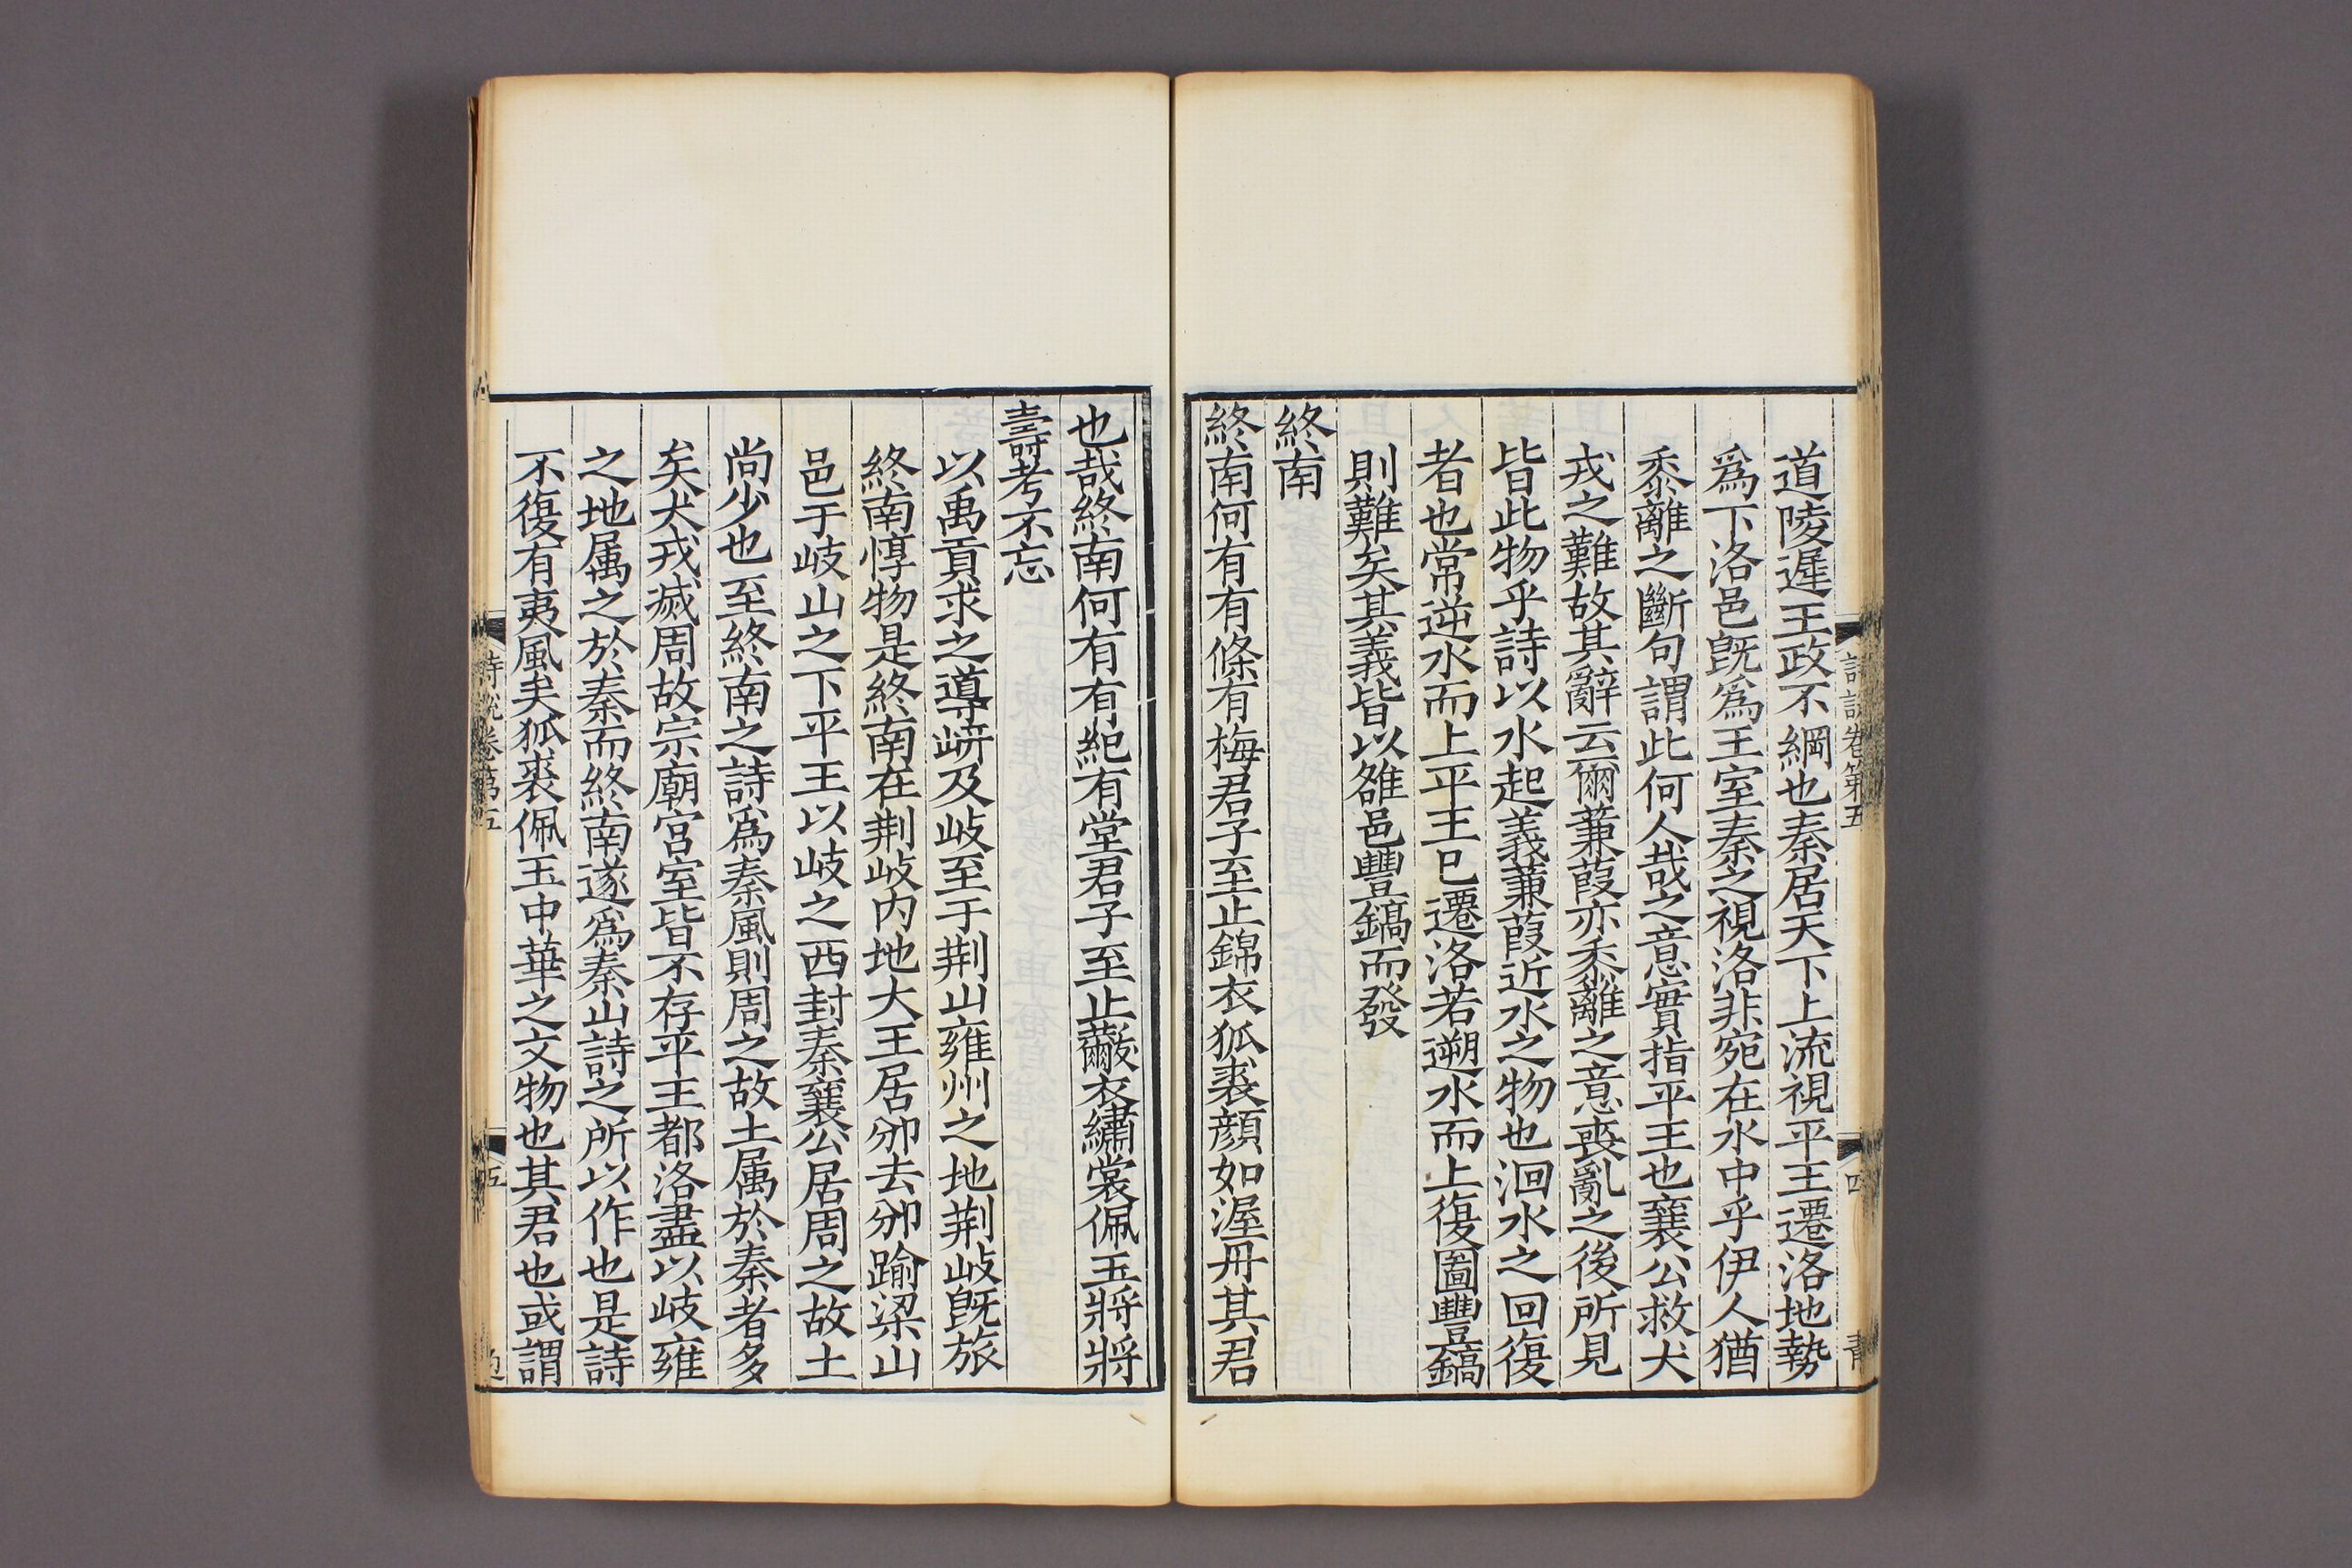 詩說卷第五
四
道陵遲王政不綱也秦居天下上流視平王遷洛地勢
爲下洛邑旣爲王室秦之視洛非宛在水中乎伊人猶
黍離之斷句謂此何人哉之意實指平王也襄公救犬
戎之難故其辭云爾蒹葭亦黍離之意喪亂之後所見
皆此物乎詩以水起義蒹葭近水之物也洄水之回復
者也常逆水而上平王巳遷洛若遡水而上復圖豐鎬
則難矣其義皆以雒邑豐鎬而發
終南
終南何有有條有梅君子至止錦衣狐裘顔如渥丹其君
也哉終南何有有紀有堂君子至止黻衣繡裳佩玉將將
壽考不忘
以禹貢求之導岍及岐至于荆山雍州之地荆岐旣旅
終南惇物是終南在荆岐内地大王居邠去邠踰梁山
邑于岐山之下平王以岐之西封秦襄公居周之故土
尚少也至終南之詩爲秦風則周之故土属於秦者多
矣犬戎滅周故宗廟宮室皆不存平王都洛盡以岐雍
之地属之於秦而終南遂爲秦山詩之所以作也是詩
不復有夷風矣狐裘佩玉中華之文物也其君也或謂
詩說卷第五
五